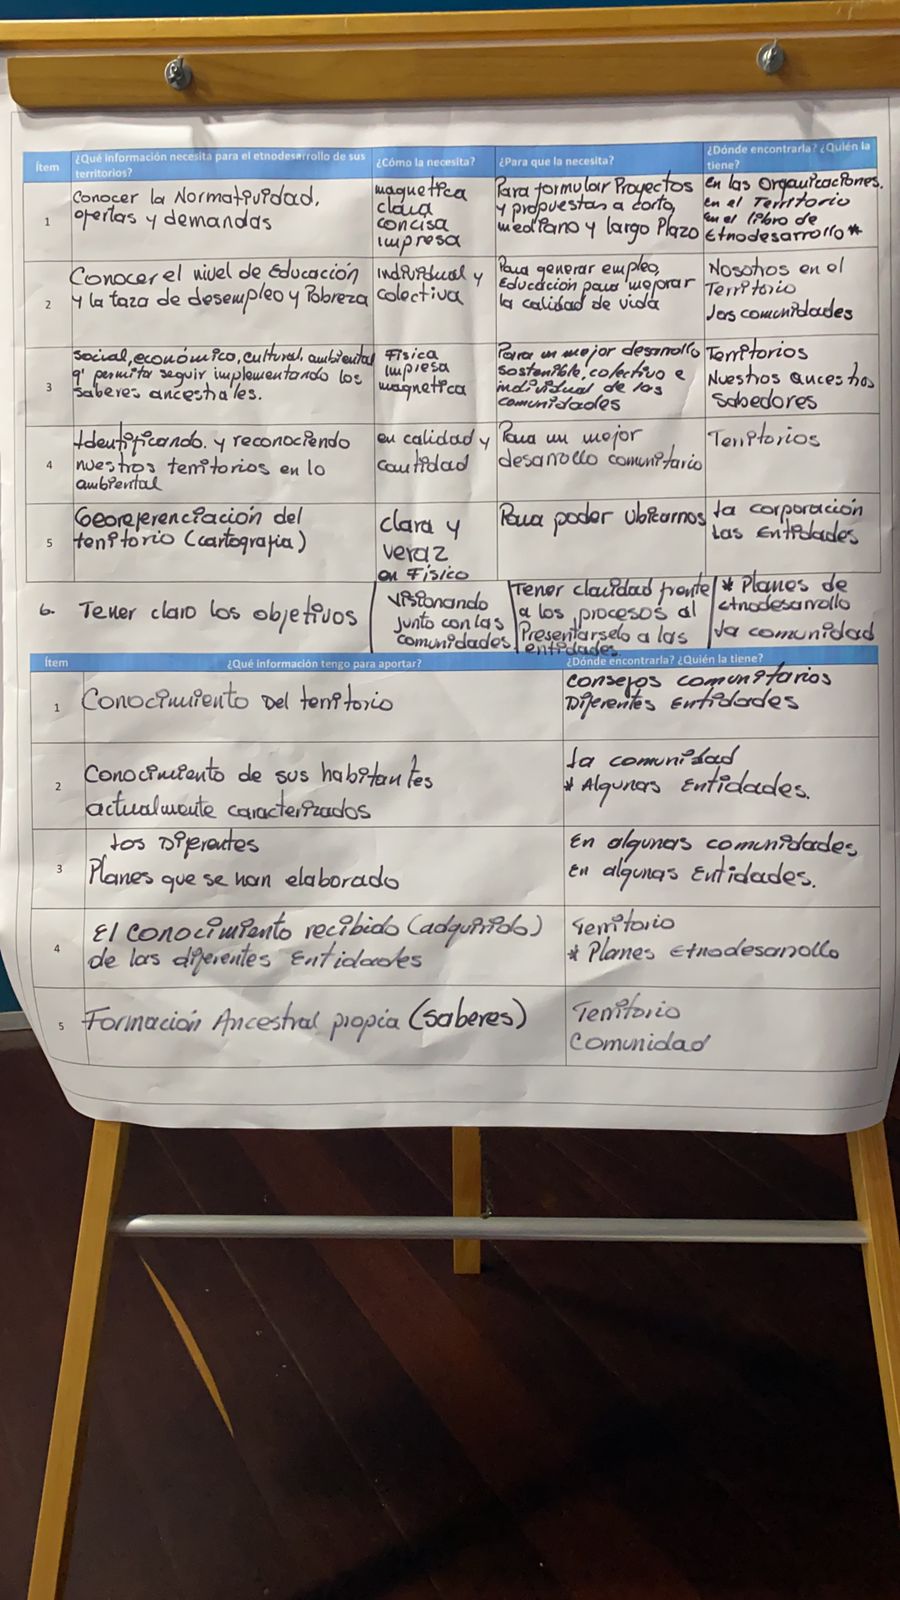 Ítem
¿Qué información necesita para el etnodesarrollo de sus
territorios?
¿Cómo la necesita?
¿Para que la necesita?
¿Dónde encontrarla? ¿Quién la
tiene?
1
Conocer la Normatividad,
ofertas y demandas
magnetica
clara
concisa
impresa
Para formular Proyectos
y propuestas a corto,
mediano y largo Plazo
en las Organizaciones.
en el Territorio
en el libro de
Etnodesarrollo *
2
Conocer el nivel de Educación
y la taza de desempleo y Pobreza
individual y
colectiva
Para generar empleo,
Educación para mejorar
la calidad de vida
Nosotros en el
Territorio
las comunidades
3
social, económico, cultural, ambiental
q' permita seguir implementando los
saberes ancestrales.
Fisica
impresa
magnetica
Para un mejor desarrollo
sostenible, colectivo e
individual de las
comunidades
Territorios
Nuestros ancestros
Sabedores
4
Identificando. y reconociendo
nuestros territorios en lo
ambiental
en calidad y
cantidad
Para un mejor
desarrollo comunitario
Territorios
5
Georeferenciación del
territorio (cartografia)
clara y
veraz
en Físico
Para poder Ubicarnos
la corporación
Las Entidades
6. Tener claro los objetivos
visionando
junto con las
comunidades
Tener claridad frente
a los procesos al
Presentarselo a las
entidades
* Planes de
etnodesarrollo
la comunidad
Ítem
¿Qué información tengo para aportar?
¿Dónde encontrarla? ¿Quién la tiene?
1
Conocimiento Del territorio
consejos comunitarios
Diferentes Entidades
2
Conocimiento de sus habitantes
actualmente caracterizados
la comunidad
* Algunas Entidades.
3
Los Diferentes
Planes que se han elaborado
En algunas comunidades,
En algunas Entidades.
4
El conocimiento recibido (adquirido)
de las diferentes Entidades
Territorio
* Planes Etnodesarrollo
5
Formación Ancestral propia (saberes)
Territorio
comunidad